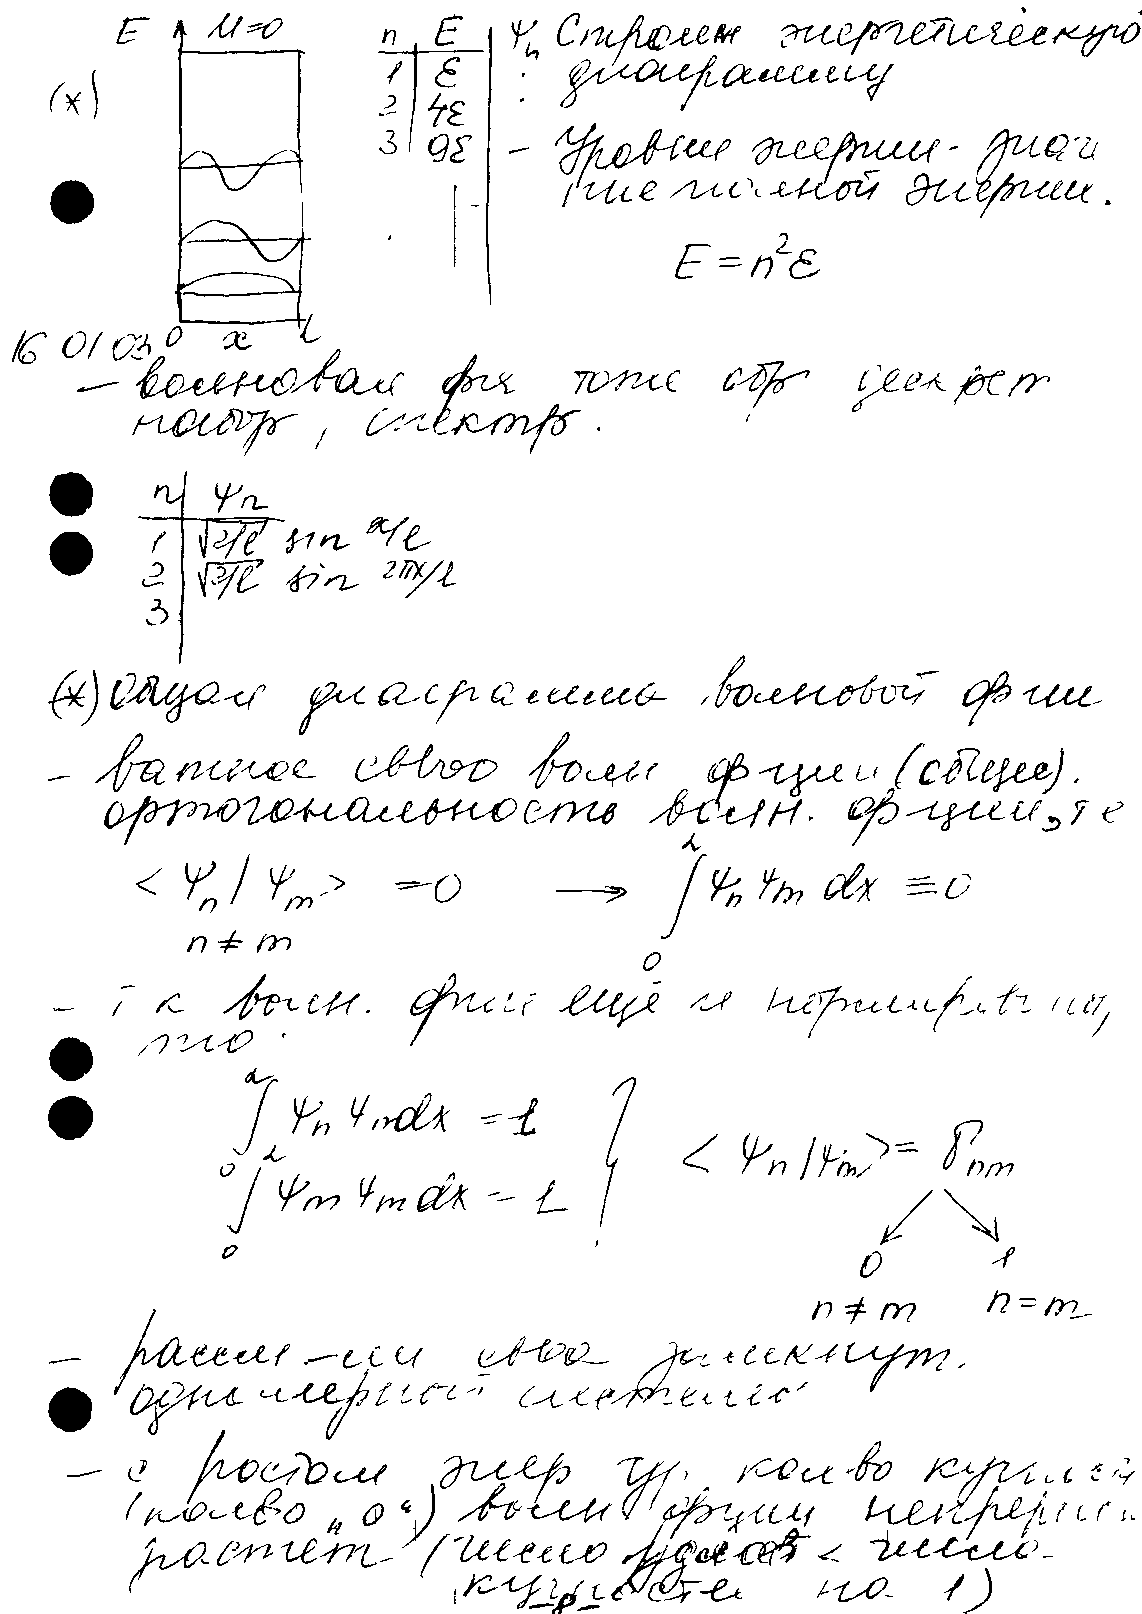 E U=0
n E Ψn Строим энергетическую
(*) 1 ε диаграмму
2 4ε
3 9ε - Уровни энергии-знач
ние полной энергии.
E = n²ε
0 x L
16 01 03
- волновая ф-я тоже обр дискрет
набор, спектр.
n Ψn
1 √2/ℓ sin πx/ℓ
2 √2/ℓ sin 2πx/ℓ
3
(*) Общая диаграмма волновой ф-ии
- важное св-во волн ф-ции (общее).
ортогональность волн. ф-ции, т е
<Ψn | Ψm> = 0 → ∫₀ᴸ Ψn Ψm dx ≡ 0
n ≠ m
- т к волн. ф-ии ещё и нормирована,
то
∫₀ᴸ Ψn Ψn dx = 1
<Ψn | Ψm> = δnm
∫₀ᴸ Ψm Ψm dx = 1
0 1
n ≠ m n = m
- рассм-ли св-ва замкнут.
одномерной системы
- с ростом энер ур. кол-во
(кол-во "0") волн ф-ции непрерывн
растёт (число узлов < число
на 1)